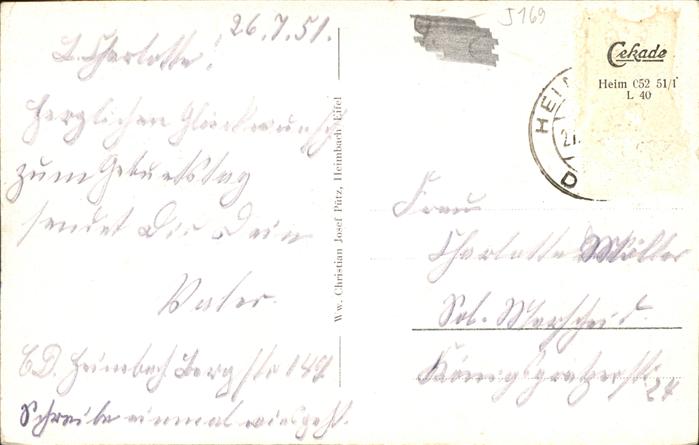 26.7.51.
L. Charlotte!
Herzlichen Glückwunsch
zum Geburtstag
sendet Dir Dein
Vater.
Heimbach Bergstr.
Schreibe einmal wies geht.
Ww. Christian Josef Pütz, Heimbach-Eifel
J 169
Cekade
Heim 052 51/1
L 40
HEI
Frau
Charlotte Müller
Sol. Merscheid.
Königgrätzerstr.
24